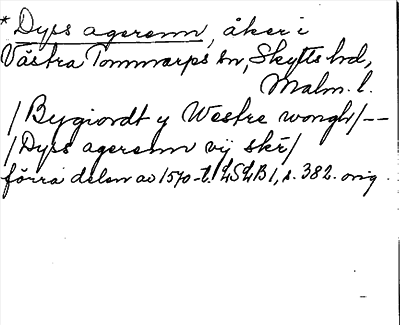 * Dyss ageremn, åker i
Västra Tommarps sn, Skytts hd,
Malm. l.
/Bygiordt y Westre wongh/--
/Dyss ageremn vij skr/
förra delen av 1570-t. LSLB1, s. 382. orig.